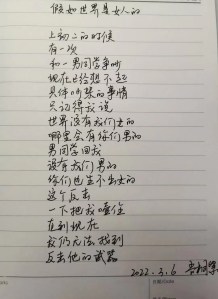 假如世界是女人的
上初二的时候
有一次
和一男同学争吵
现在已经想不起
具体吵架的事情
只记得我说
世界没有我们女的
哪里会有你们男的
男同学回我
没有我们男的
你们也生不出女的
这个反击
一下把我噎住
直到现在
我仍无法找到
反击他的武器
2022.3.6